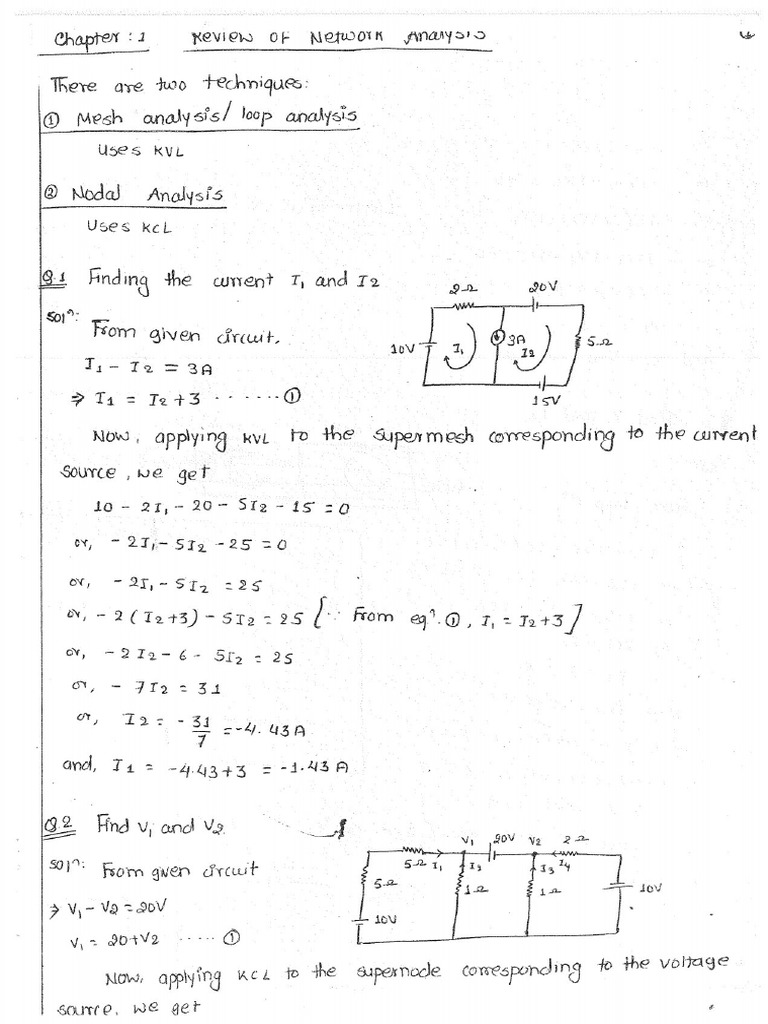 Chapter : 1 Review of Network Analysis
There are two techniques:
① Mesh analysis/ loop analysis
Uses KVL
② Nodal Analysis
Uses KCL
Q.1 Finding the current I₁ and I₂
Solⁿ:
From given circuit.
I₁ - I₂ = 3A
⇒ I₁ = I₂ + 3 ....... ①
2Ω 20V
10V I₁ 3A I₂ 5Ω
15V
Now, applying KVL to the supermesh corresponding to the current
source, we get
10 - 2I₁ - 20 - 5I₂ - 15 = 0
or, - 2I₁ - 5I₂ - 25 = 0
or, - 2I₁ - 5I₂ = 25
or, - 2 (I₂+3) - 5I₂ = 25 [∵ From eqⁿ. ①, I₁ = I₂+3]
or, - 2I₂ - 6 - 5I₂ = 25
or, - 7I₂ = 31
or, I₂ = - 31/7 = -4.43A
and, I₁ = -4.43+3 = -1.43A
Q 2 Find V₁ and V₂.
Solⁿ: From given circuit
⇒ V₁ - V₂ = 20V
V₁ = 20+V₂ ..... ①
V₁ 20V V₂ 2Ω
5Ω I₁ I₃ I₃ I₄
5Ω 1Ω 1Ω 10V
10V
Now, applying KCL to the supernode corresponding to the voltage
source, we get